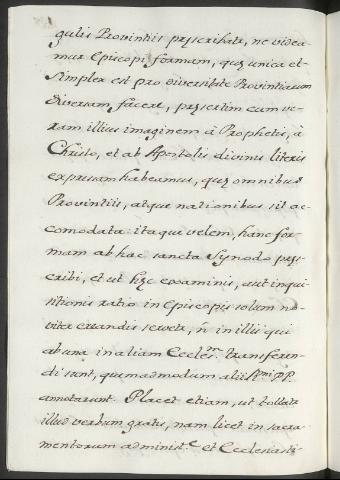 gulis Provintiis pręscribatr, ne videa-
mur Episcopi formam, quę unica et
simplex est pro diversitate Provintiarum
diversam facere, pręsertim cum ve-
ram illius imaginem à Prophetis, à
Christo, et ab Apostolis divinis literis
expressam habeamus, quę omnibus
Provintiis, atque nationibus sit ac-
comodata: itaque velem, hanc for-
mam ab hac sancta Synodo pręs-
cribi, et ut hęc examinis, aut inqui-
sitionis ratio in Episcopis solum no-
viter creandis servetr, ñ in illis qui
ab una in aliam Eccles.m transferen-
di sunt, quemadmodum alii Rmi PP.
annotarunt. Placet etiam, ut tollatr
illud verbum gratis, nam licet in sacra-
mentorum administ.e et Ecclesiasti-